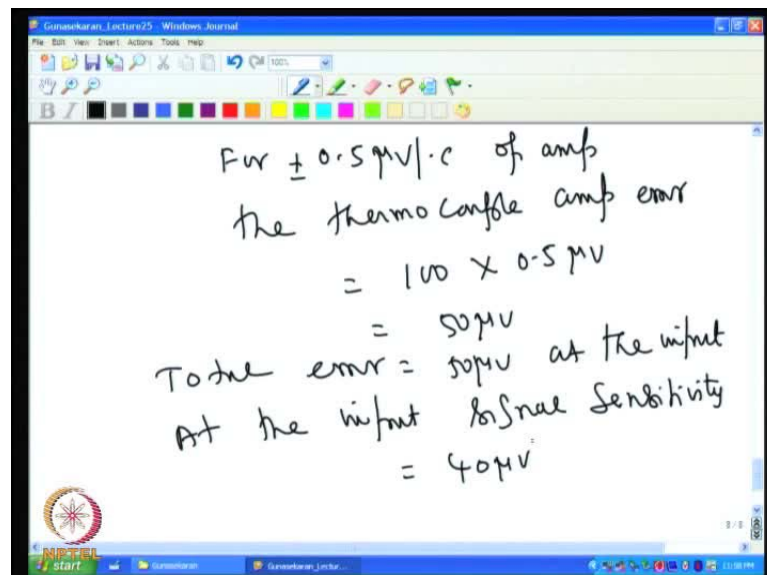 Gunasekaran_Lecture25 - Windows Journal
File Edit View Insert Actions Tools Help
100%
B I
For ± 0.5 μV/°C of amp
the thermo couple amp error
= 100 × 0.5 μV
= 50 μV
Total error = 50μV at the input
At the input signal Sensitivity
= 40μV
8/8
NPTEL
start Gunasekaran Gunasekaran_Lectur... 11:58 PM